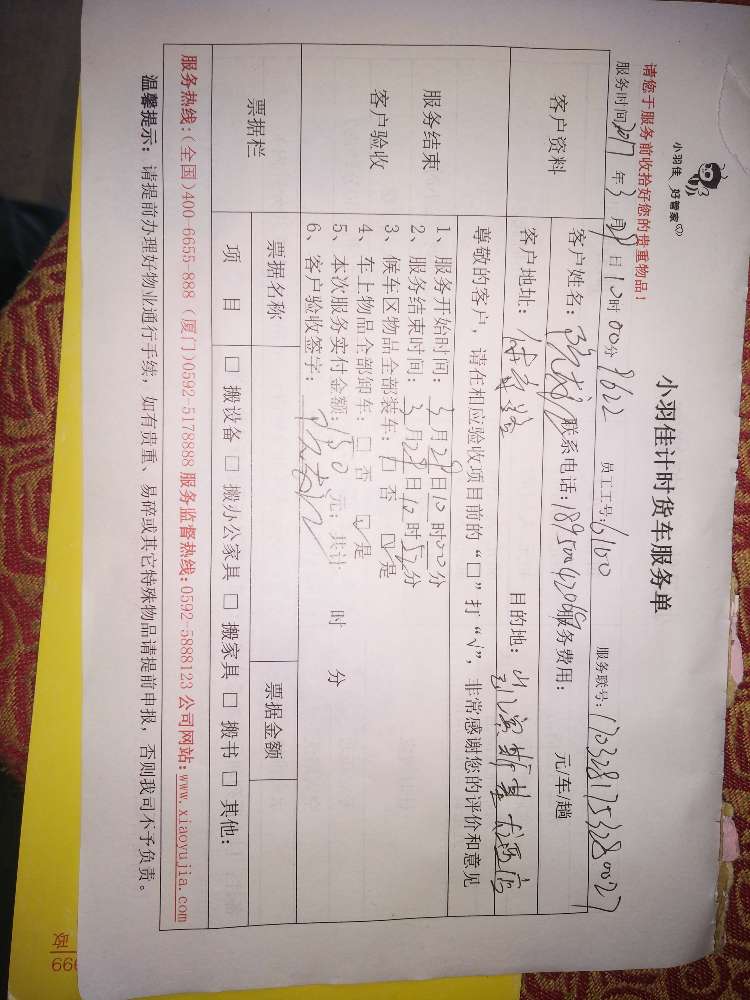 小羽佳 好管家
小羽佳计时货车服务单
请您于服务前收拾好您的贵重物品!
服务时间2017年3月29日10时00分 9622 员工工号:6160 服务联号:1703281753280027
客户资料
客户姓名: 联系电话:18950042069服务费用: 元/车/趟
客户地址: 目的地:
服务结束
客户验收
尊敬的客户,请在相应验收项目前的“□”打“√”,非常感谢您的评价和意见
1、服务开始时间:3月29日10时00分
2、服务结束时间:3月29日10时52分
3、候车区物品全部装车:□ 否 ☑ 是
4、车上物品全部卸车:□ 否 ☑ 是
5、本次服务实付金额:50元;共计 时 分
6、客户验收签字:
票据栏
票据名称 票据金额
项 目 □ 搬设备 □ 搬办公家具 □ 搬家具 □ 搬书 □ 其他:
服务热线:(全国)400-6655-888 (厦门)0592-5178888 服务监督热线:0592-5888123 公司网站:www.xiaoyujia.com
温馨提示:请提前办理好物业通行手续,如有贵重、易碎或其它特殊物品请提前申报,否则我司不予负责。
政
666